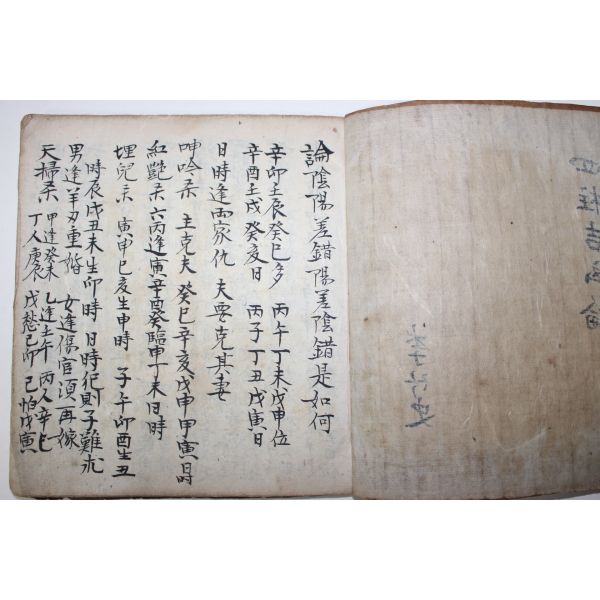 論陰陽差錯陽差陰錯是如何
辛卯壬辰癸巳多 丙午丁未戊申位
辛酉壬戌癸亥日 丙子丁丑戊寅日
日時逢兩家仇 夫要克其妻
呻吟杀 主克夫 癸巳辛亥戊申甲寅日時
紅艷杀 六丙逢寅辛酉癸臨申丁未日時
埋兒杀 寅申巳亥生申時 子午卯酉生丑
時辰戌丑未生卯時 日時犯則子難成
男逢羊刃重婚 女逢傷官須再嫁
天掃杀 甲逢癸未 乙逢壬午 丙人辛巳
丁人庚辰 戊愁己卯 己怕戊寅
四柱